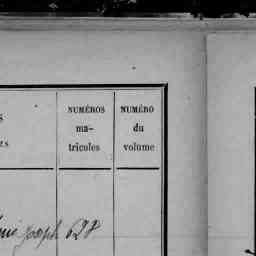 S
NUMÉROS
ma-
tricules
NUMÉRO
du
volume
ES
Joseph 628